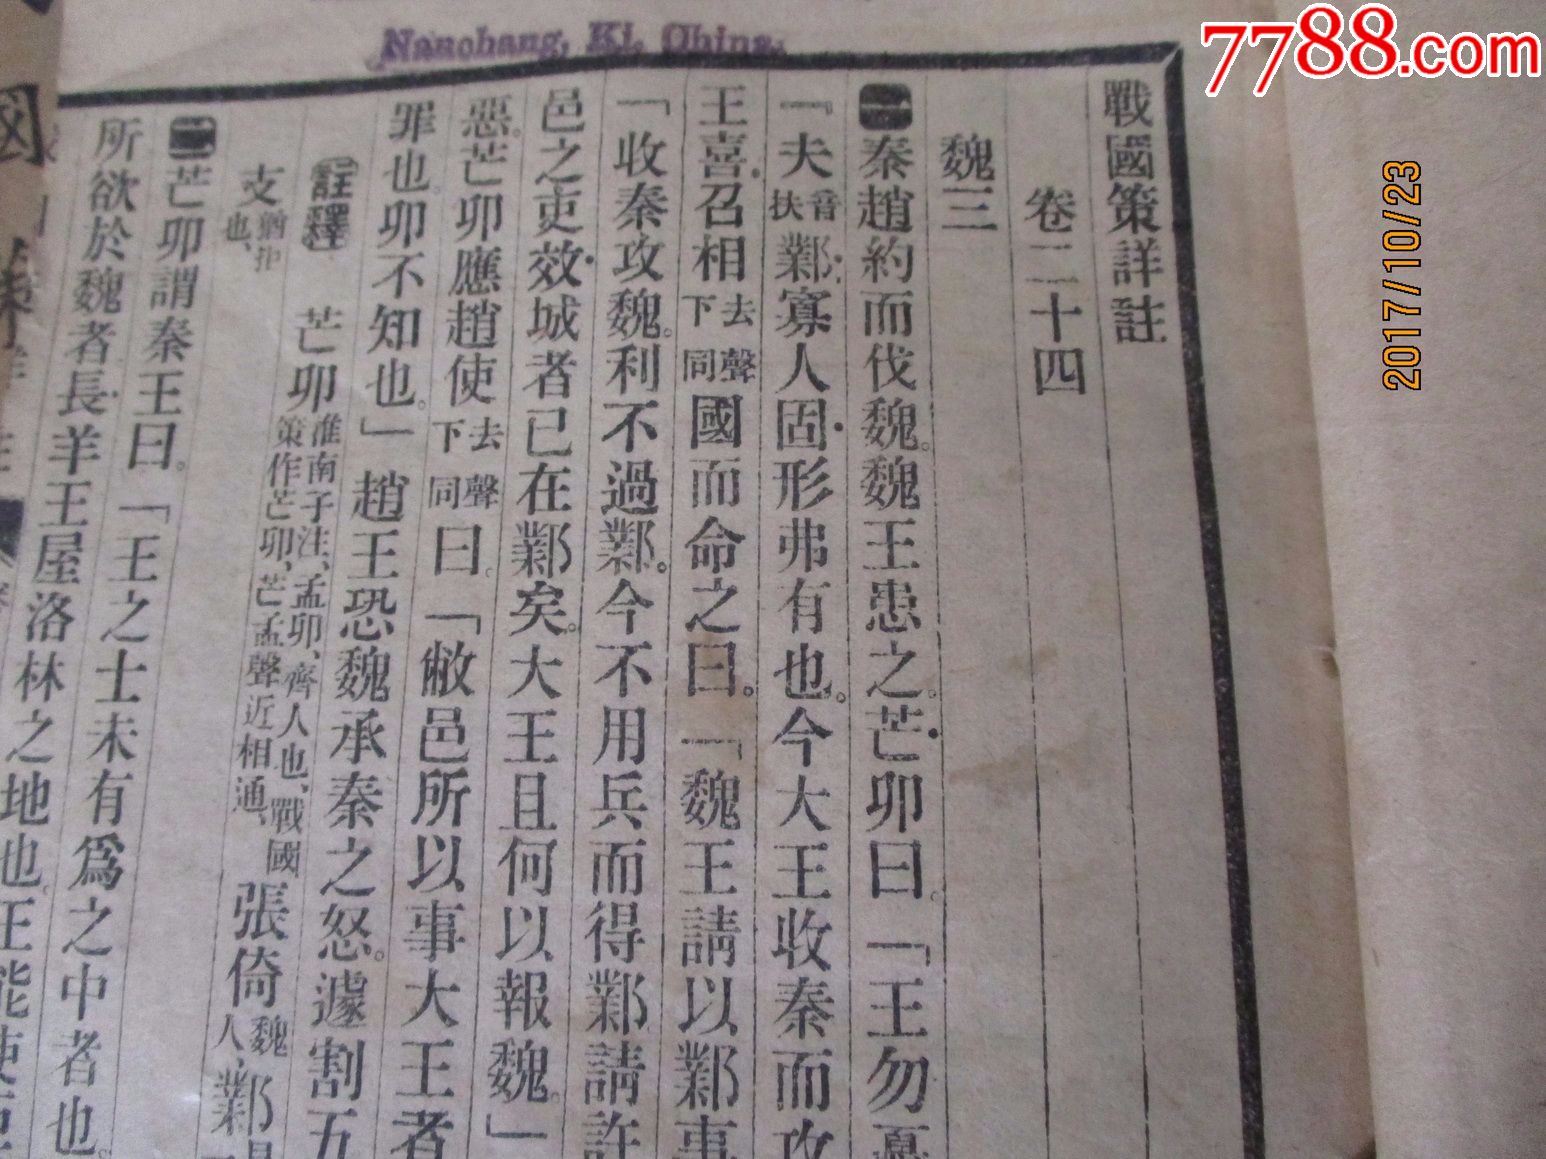 7788.com
2017/10/23
Nanchang, Ki, China.
戰國策詳註
卷二十四
魏三
一 秦趙約而伐魏。魏王患之。芒卯曰。「王勿憂
「夫音扶鄴。寡人固形弗有也。今大王收秦而攻
王喜。召相去聲下同國而命之曰。「魏王請以鄴事
「收秦攻魏。利不過鄴。今不用兵而得鄴。請許
邑之吏效城者已在鄴矣。大王且何以報魏。」
惡。芒卯應趙使去聲下同曰。「敝邑所以事大王者
罪也。卯不知也。」趙王恐魏承秦之怒。遽割五
註釋 芒卯淮南子注、孟卯、齊人也、戰國策作芒卯、芒孟聲近相通、張倚魏人、鄴
支猶拒也、
二 芒卯謂秦王曰。「王之士未有爲之中者也。
所欲於魏者長羊王屋洛林之地也。王能使